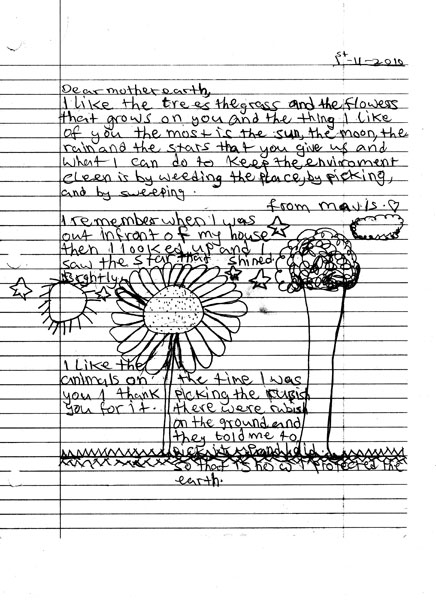 1st-11-2010
Dear mother earth,
I like the trees the grass and the flowers
that grows on you and the thing I like
of you the most is the sun, the moon, the
rain and the stars that you give us and
what I can do to keep the enviroment
cleen is by weeding the place, by picking,
and by sweeping.
from mavis.
I remember when I was
out infront of my house
then I looked up and I
saw the star that shined
brightly
I like the
animals on
you I thank
you for it.
the time I was
picking the rubish
there were rubish
on the ground and
they told me to
pick it up and I did
so that is how I protected the
earth.